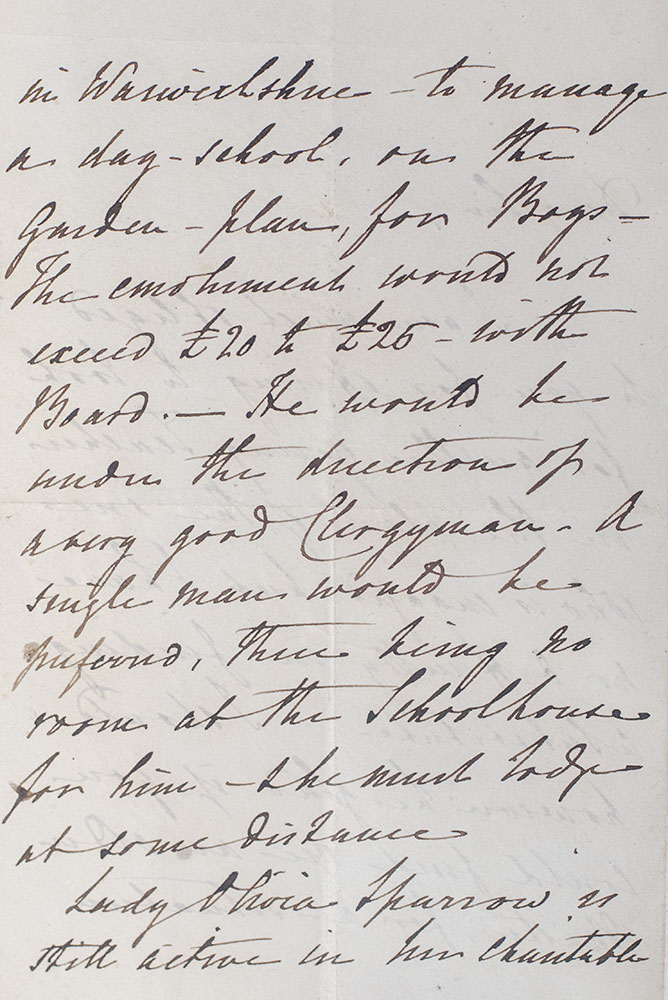 in Warwickshire - to manage
a day-school, on the
Garden-plan, for Boys -
The emolument would not
exceed £20 to £25 - with
Board. - He would be
under the direction of
a very good Clergyman. A
single man would be
preferred, there being no
room at the Schoolhouse
for him - & he must lodge
at some distance
Lady Olivia Sparrow is
still active in her charitable